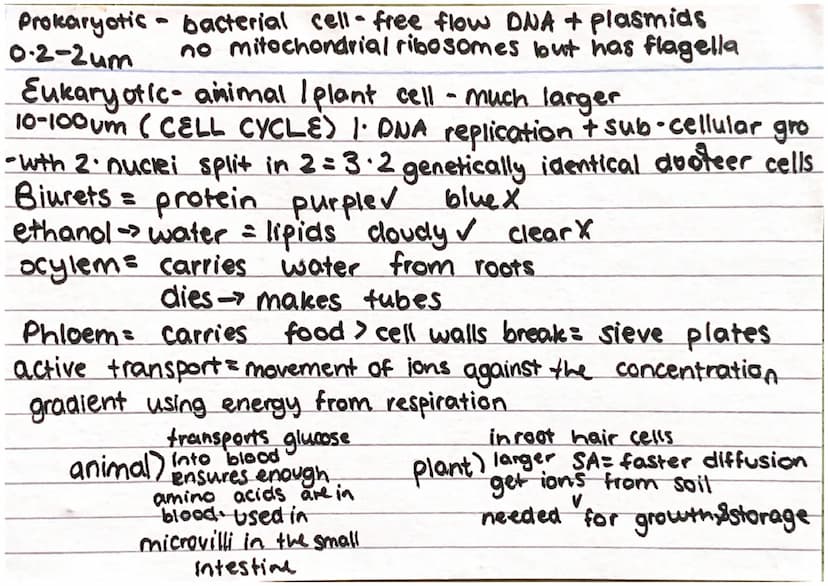 Prokaryotic - bacterial cell - free flow DNA + plasmids
0.2-2um no mitochondrial ribosomes but has flagella
Eukaryotic - animal / plant cell - much larger
10-100um (CELL CYCLE) 1. DNA replication + sub-cellular gro
-wth 2. nuclei split in 2 = 3. 2 genetically identical dooteer cells
Biurets = protein purple✓ blue X
ethanol → water = lipids cloudy ✓ clear X
ocylem = carries water from roots
dies → makes tubes
Phloem = carries food > cell walls break = sieve plates
active transport = movement of ions against the concentration
gradient using energy from respiration
animal) transports glucose
into blood
ensures enough
amino acids are in
blood. Used in
microvilli in the small
intestine
plant) in root hair cells
larger SA = faster diffusion
get ions from soil
needed for growth & storage